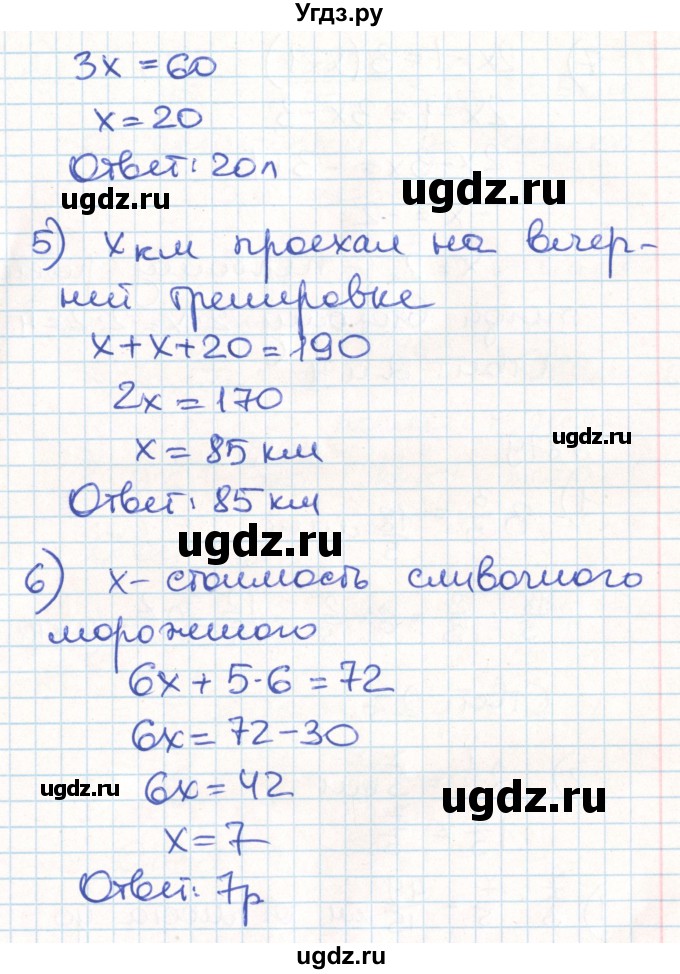 Угдз.ру
3x = 60
x = 20
Ответ: 20л
ugdz.ru ugdz.ru
5) x км проехал на вечер-
ней тренировке
x + x + 20 = 190
2x = 170
ugdz.ru
x = 85 км
Ответ: 85 км
ugdz.ru
6) x - стоимость сливочного
мороженого
6x + 5·6 = 72
6x = 72 - 30
ugdz.ru 6x = 42 ugdz.ru
x = 7
Ответ: 7р
ugdz.ru